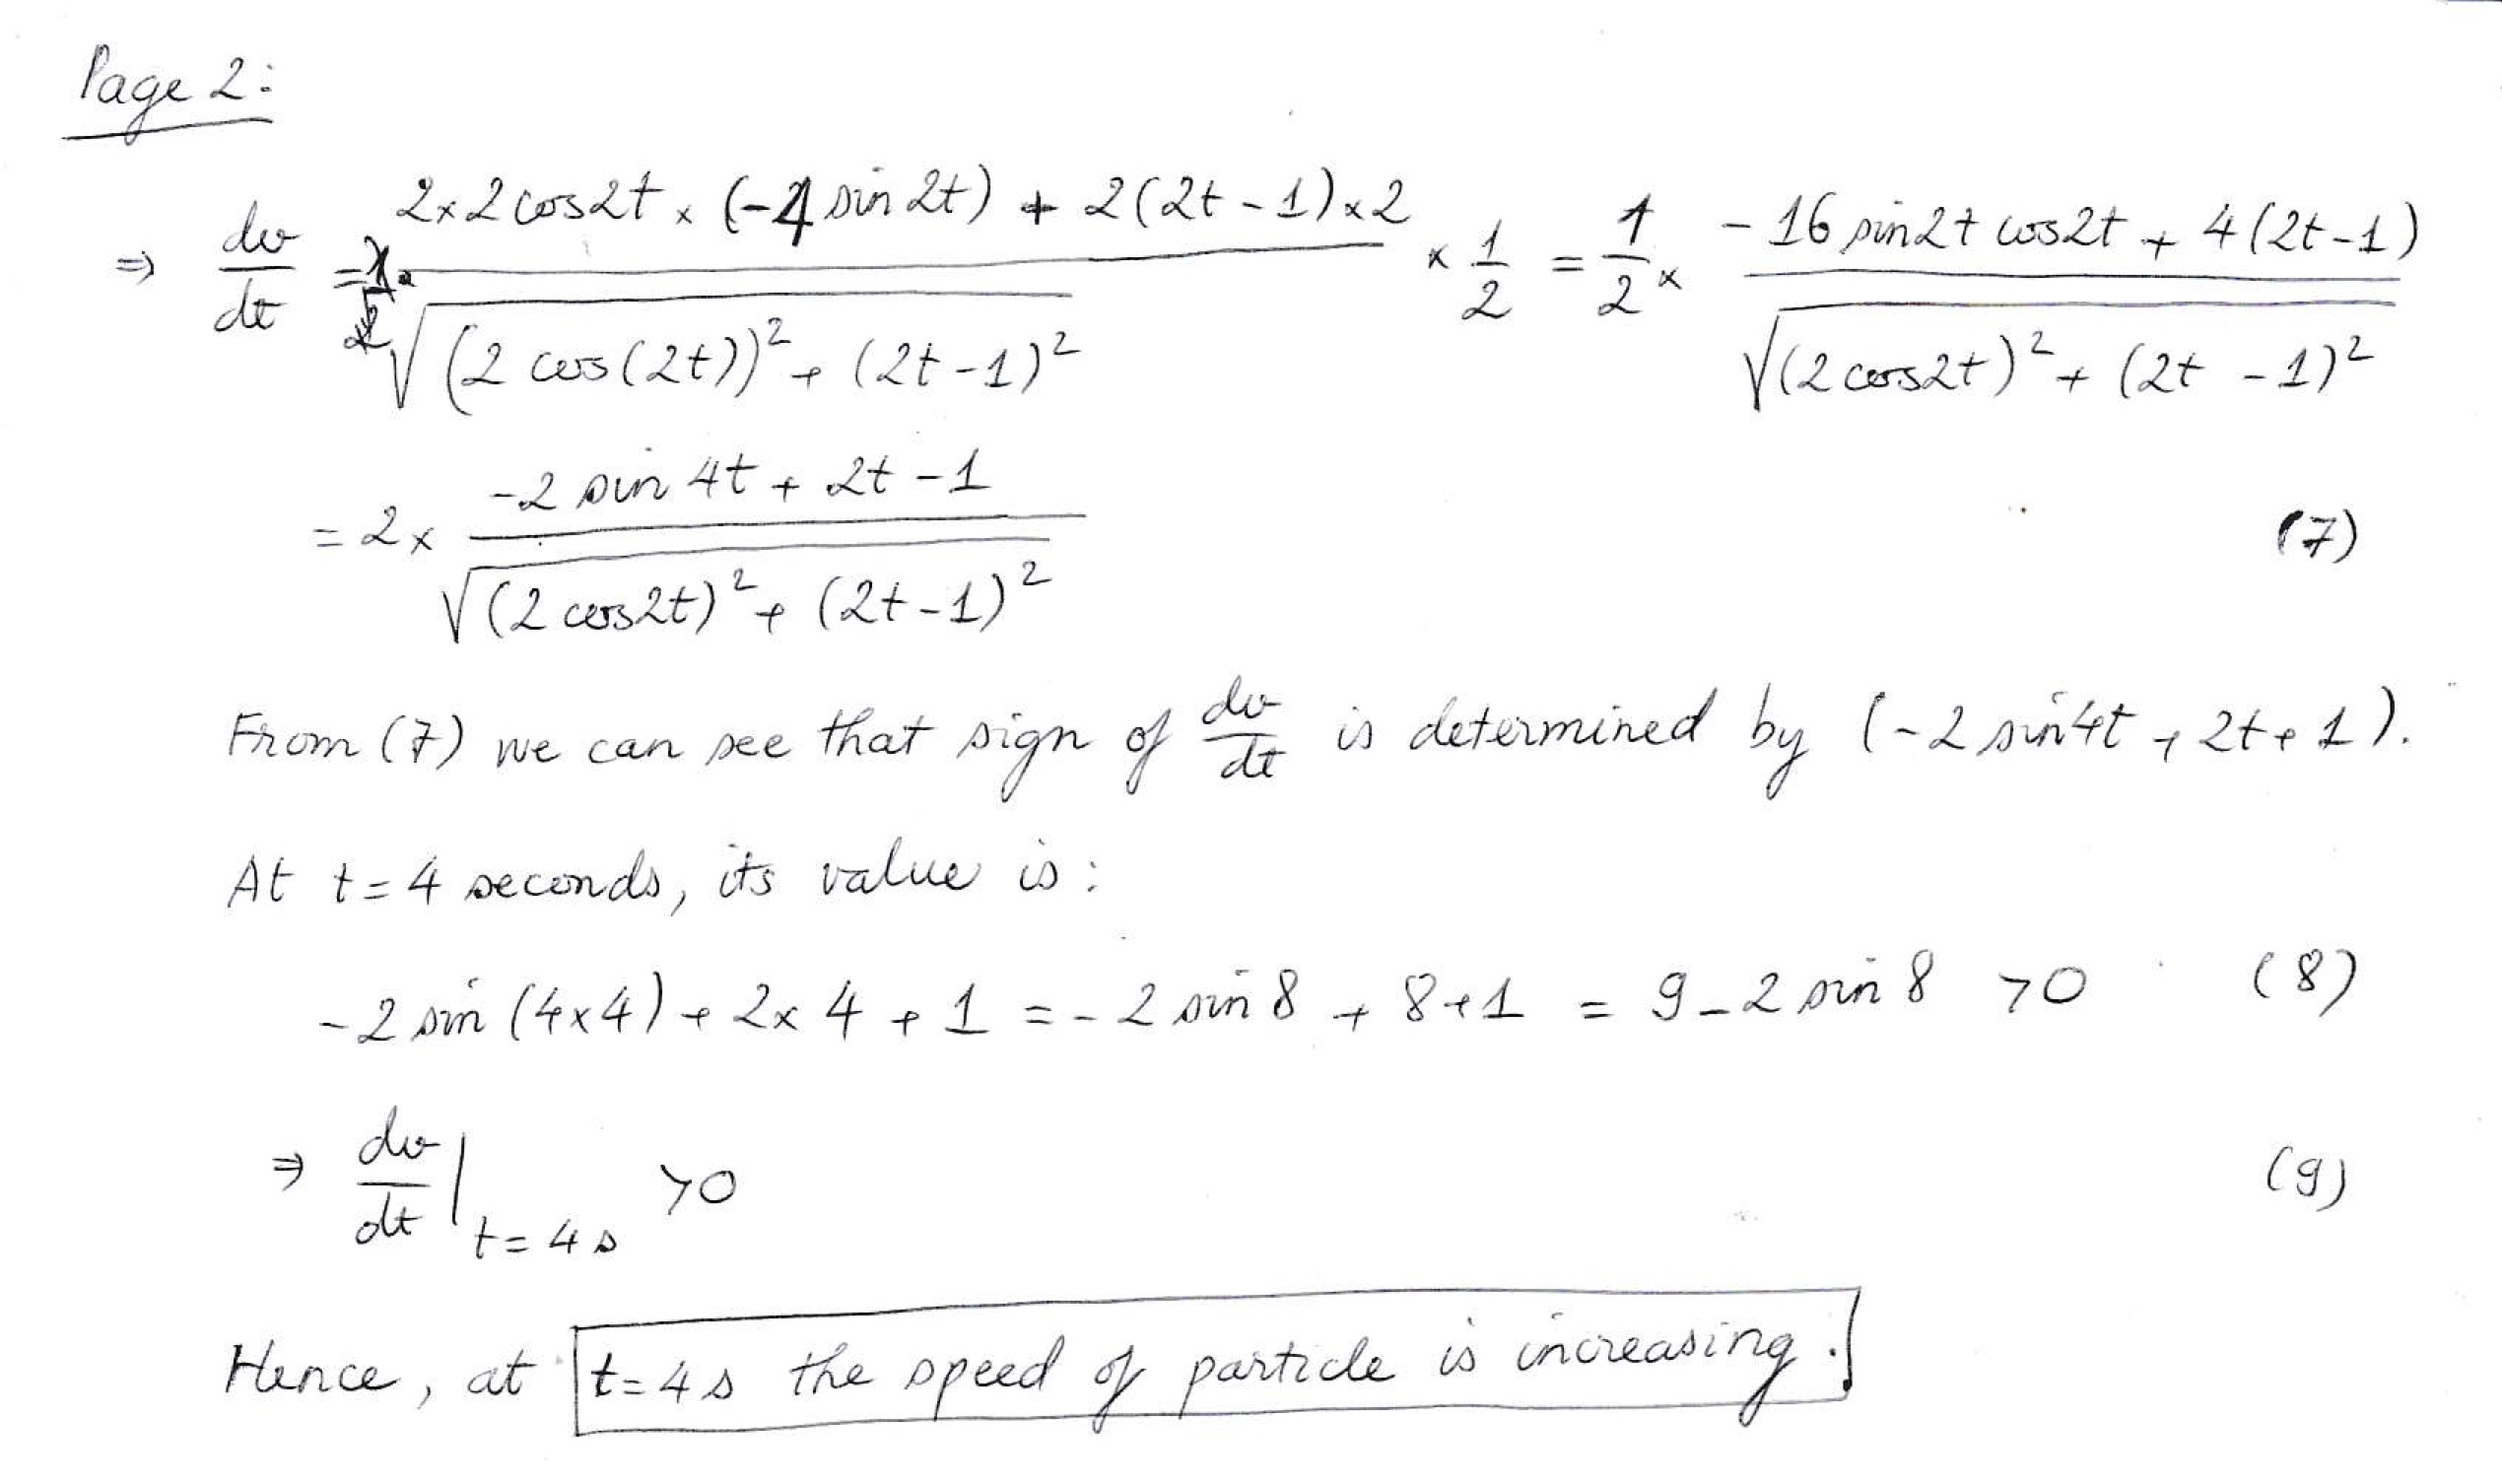 Page 2:
⇒ dv/dt = (2×2cos2t × (-4 sin 2t) + 2(2t-1)×2) / √((2 cos(2t))² + (2t-1)²) × 1/2 = 1/2 × (-16 sin2t cos2t + 4(2t-1)) / √((2cos2t)² + (2t-1)²)
= 2× (-2 sin 4t + 2t-1) / √((2cos2t)² + (2t-1)²) (7)
From (7) we can see that sign of dv/dt is determined by (-2 sin4t + 2t+1).
At t=4 seconds, its value is:
-2 sin (4×4) + 2×4 + 1 = -2 sin 8 + 8+1 = 9-2 sin 8 >0 (8)
⇒ dv/dt |t=4s >0 (9)
Hence, at t=4s the speed of particle is increasing.